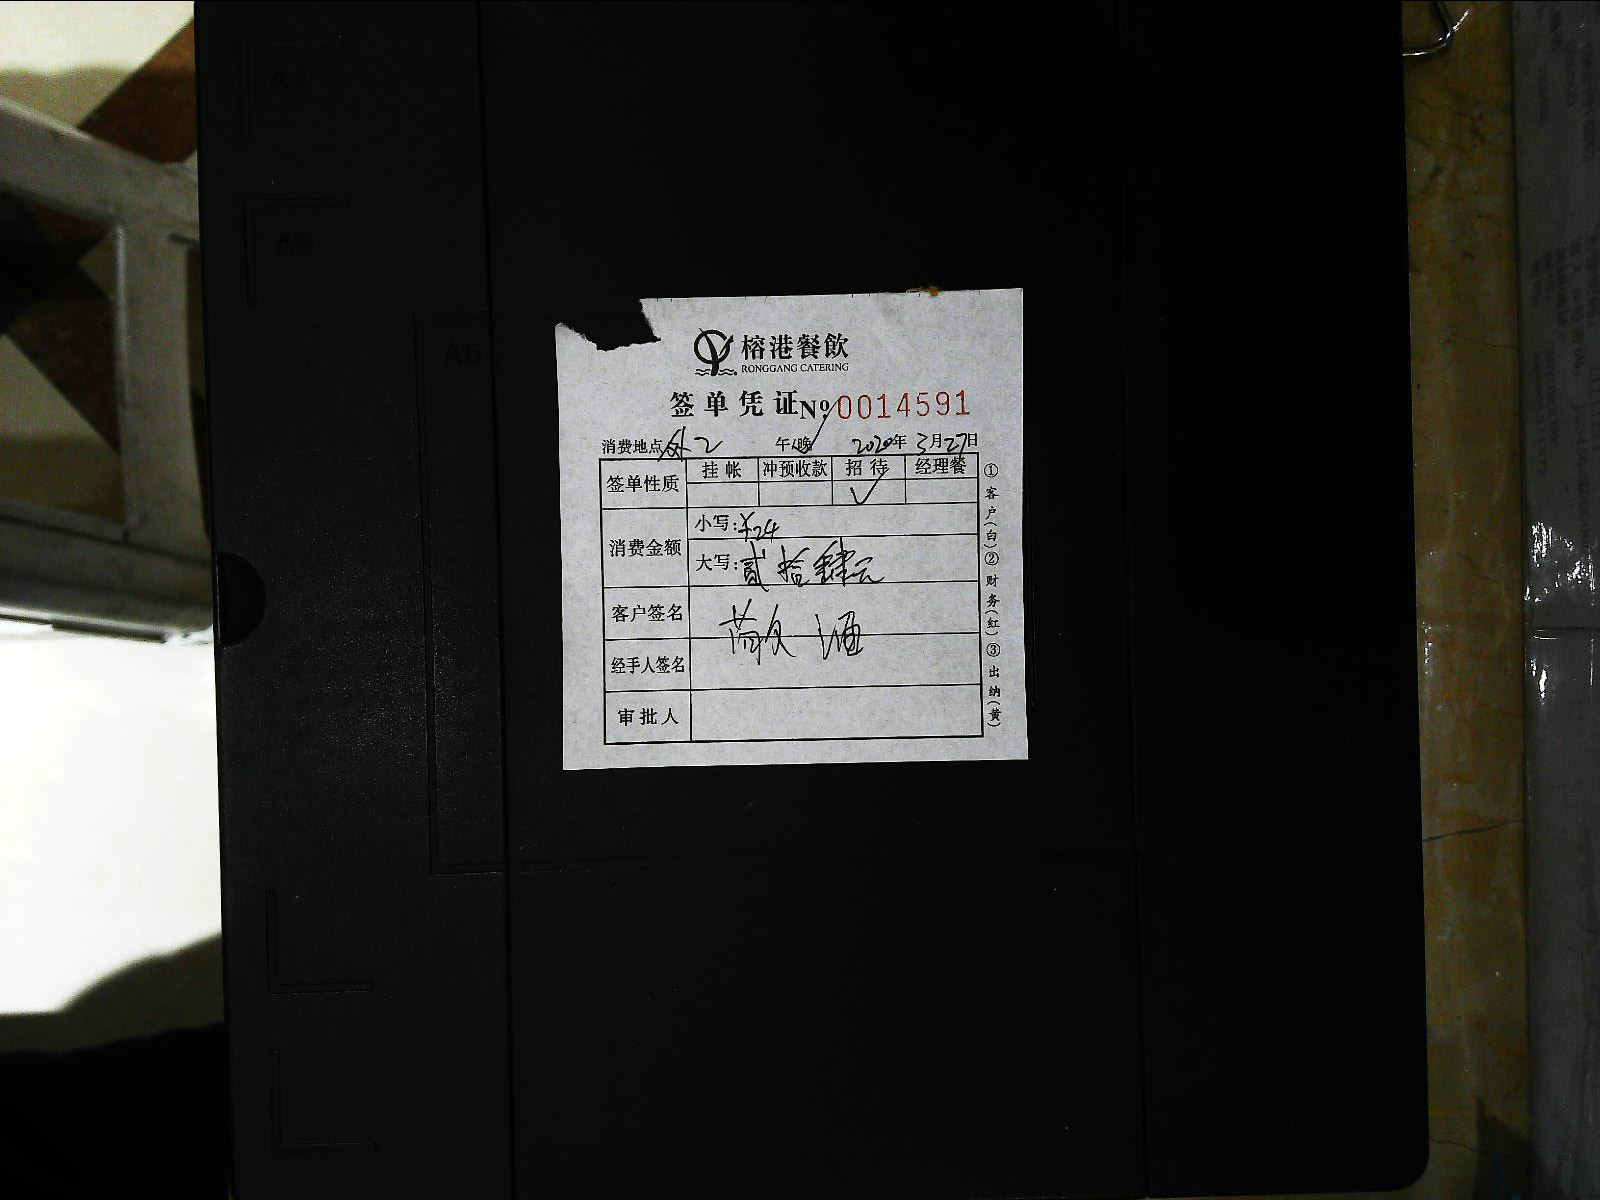 榕港餐飲
RONGGANG CATERING
签单凭证 № 0014591
消费地点 外2 午/晚 2020年3月27日
签单性质 挂帐 冲预收款 招待 经理餐
✓
消费金额 小写:¥24
大写:贰拾肆元
客户签名
经手人签名
审批人
①客户(白)②财务(红)③出纳(黄)
A4
A5
A6